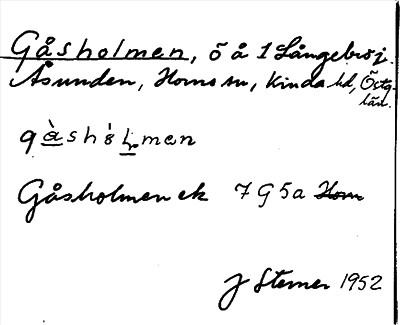 Gåsholmen, ö å 1 Långebro j.
Åsunden, Horns sn, Kinda hd, Östg.
län.
gàshòl̥men
Gåsholmen ek 7 G 5a Horn
J Sterner 1952